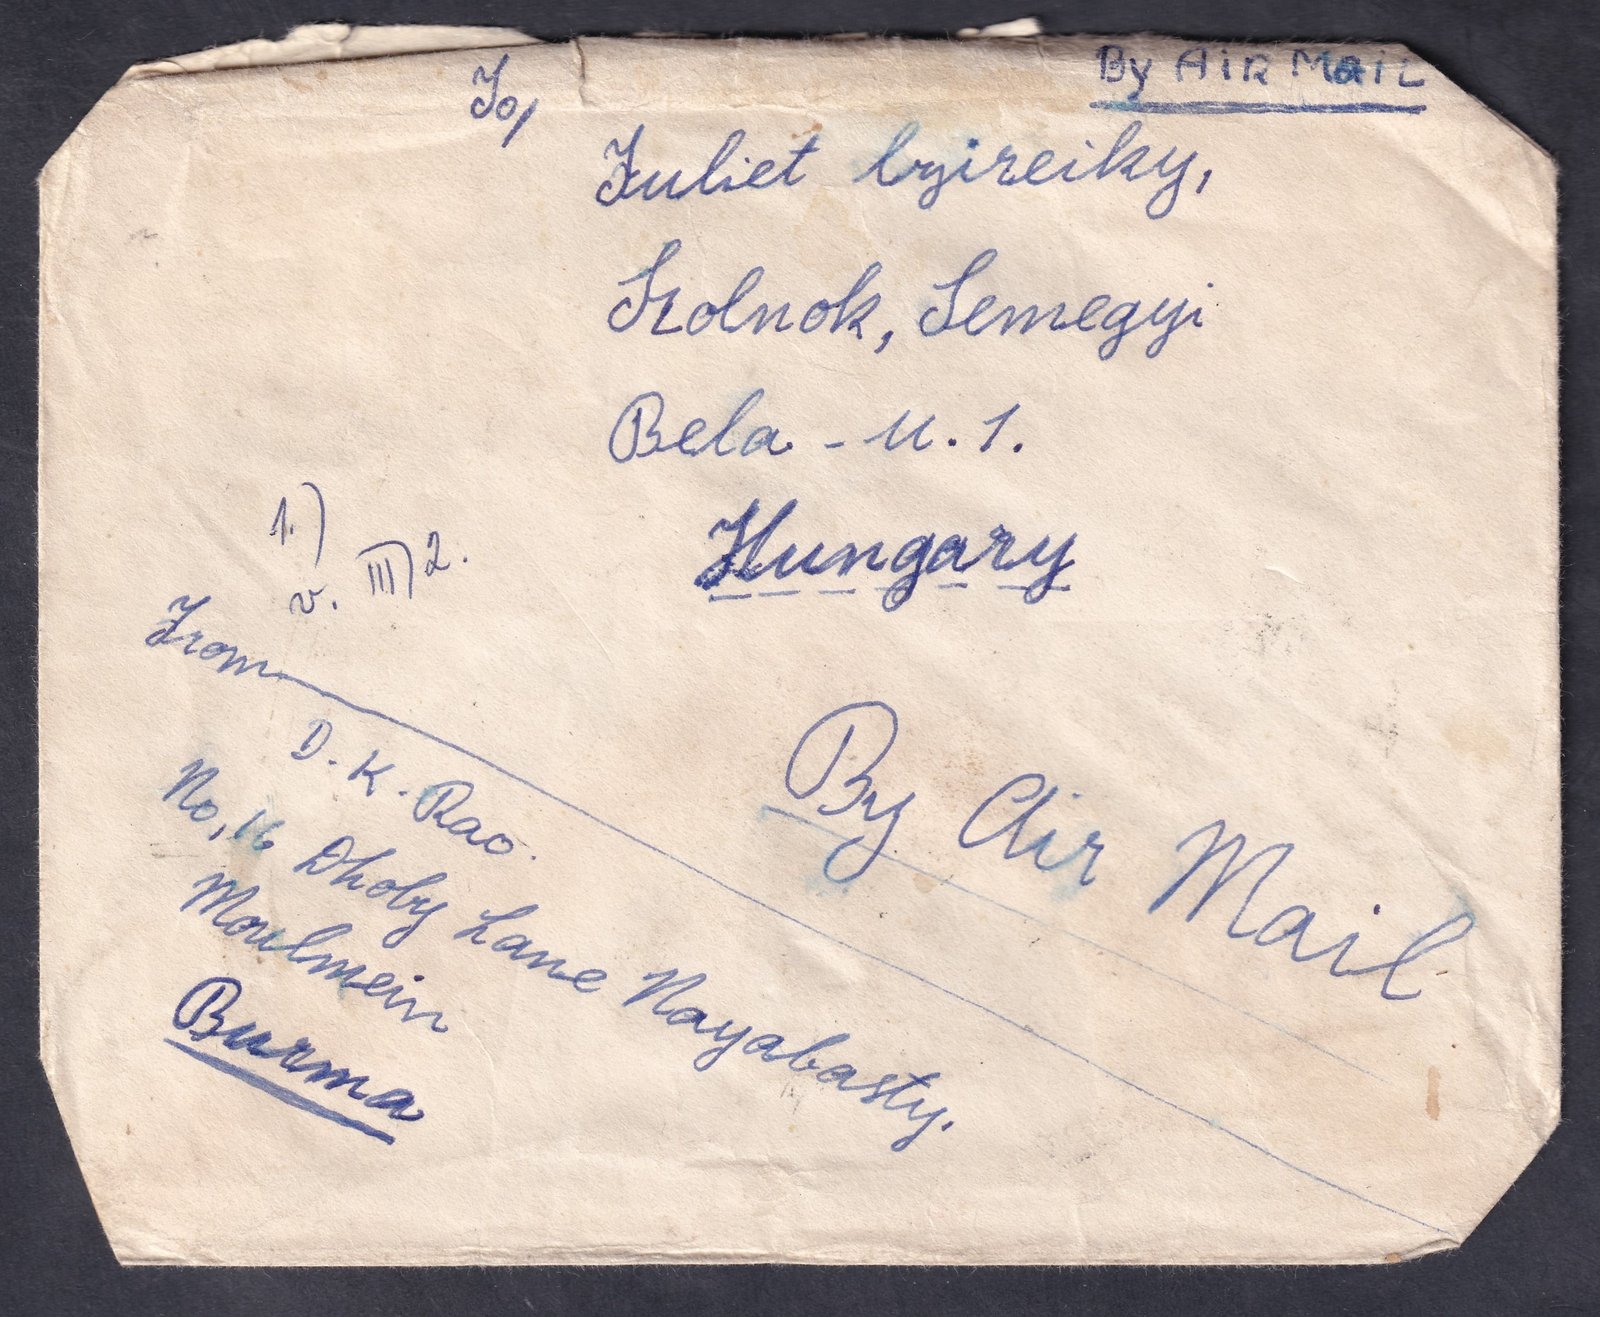 By AiR MaiL
To,
Juliet
Szolnok, Semegyi
Bela - u. 1.
Hungary
1.)
v. III) 2.
From
D. K. Rao.
No, 16 Dhoby Lane Nayabasty.
Moulmein
Burma
By Air Mail